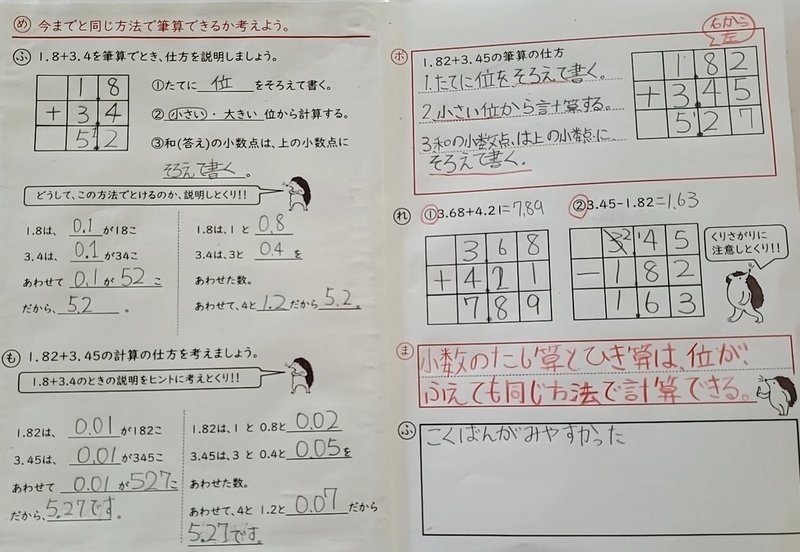 め 今までと同じ方法で筆算できるか考えよう。
ふ 1.8+3.4を筆算でとき、仕方を説明しましょう。
1.8
+3.4
5.12
①たてに 位 をそろえて書く。
②小さい・大きい 位から計算する。
③和(答え)の小数点は、上の小数点に
そろえて書く。
どうして、この方法でとけるのか、説明しとくり!!
1.8は、 0.1 が18こ
3.4は、 0.1 が34こ
あわせて 0.1が 52 こ
だから、 5.2 。
1.8は、1 と 0.8
3.4は、3と 0.4 を
あわせた数。
あわせて、4と 1.2 だから 5.2。
も 1.82+3.45の計算の仕方を考えましょう。
1.8+3.4のときの説明をヒントに考えとくり!!
1.82は、 0.01 が182こ
3.45は、 0.01 が345こ
あわせて 0.01 が 527こ
だから、5.27です 。
1.82は、1 と 0.8と 0.02
3.45は、3 と 0.4と 0.05を
あわせた数。
あわせて、4と 1.2と 0.07 だから
5.27です。
右から
左
ホ 1.82+3.45の筆算の仕方
1.たてに位をそろえて書く。
2.小さい位から計算する。
3.和の小数点は上の小数点に
そろえて書く。
1.82
+3.45
5.27
れ ①3.68+4.21=7.89 ②3.45-1.82=1.63
3.68
+4.21
7.89
3 2 1 4 5
-1.82
1.63
くりさがりに
注意しとくり!!
ま 小数のたし算とひき算は、位が
ふえても同じ方法で計算できる。
ふ こくばんがみやすかった